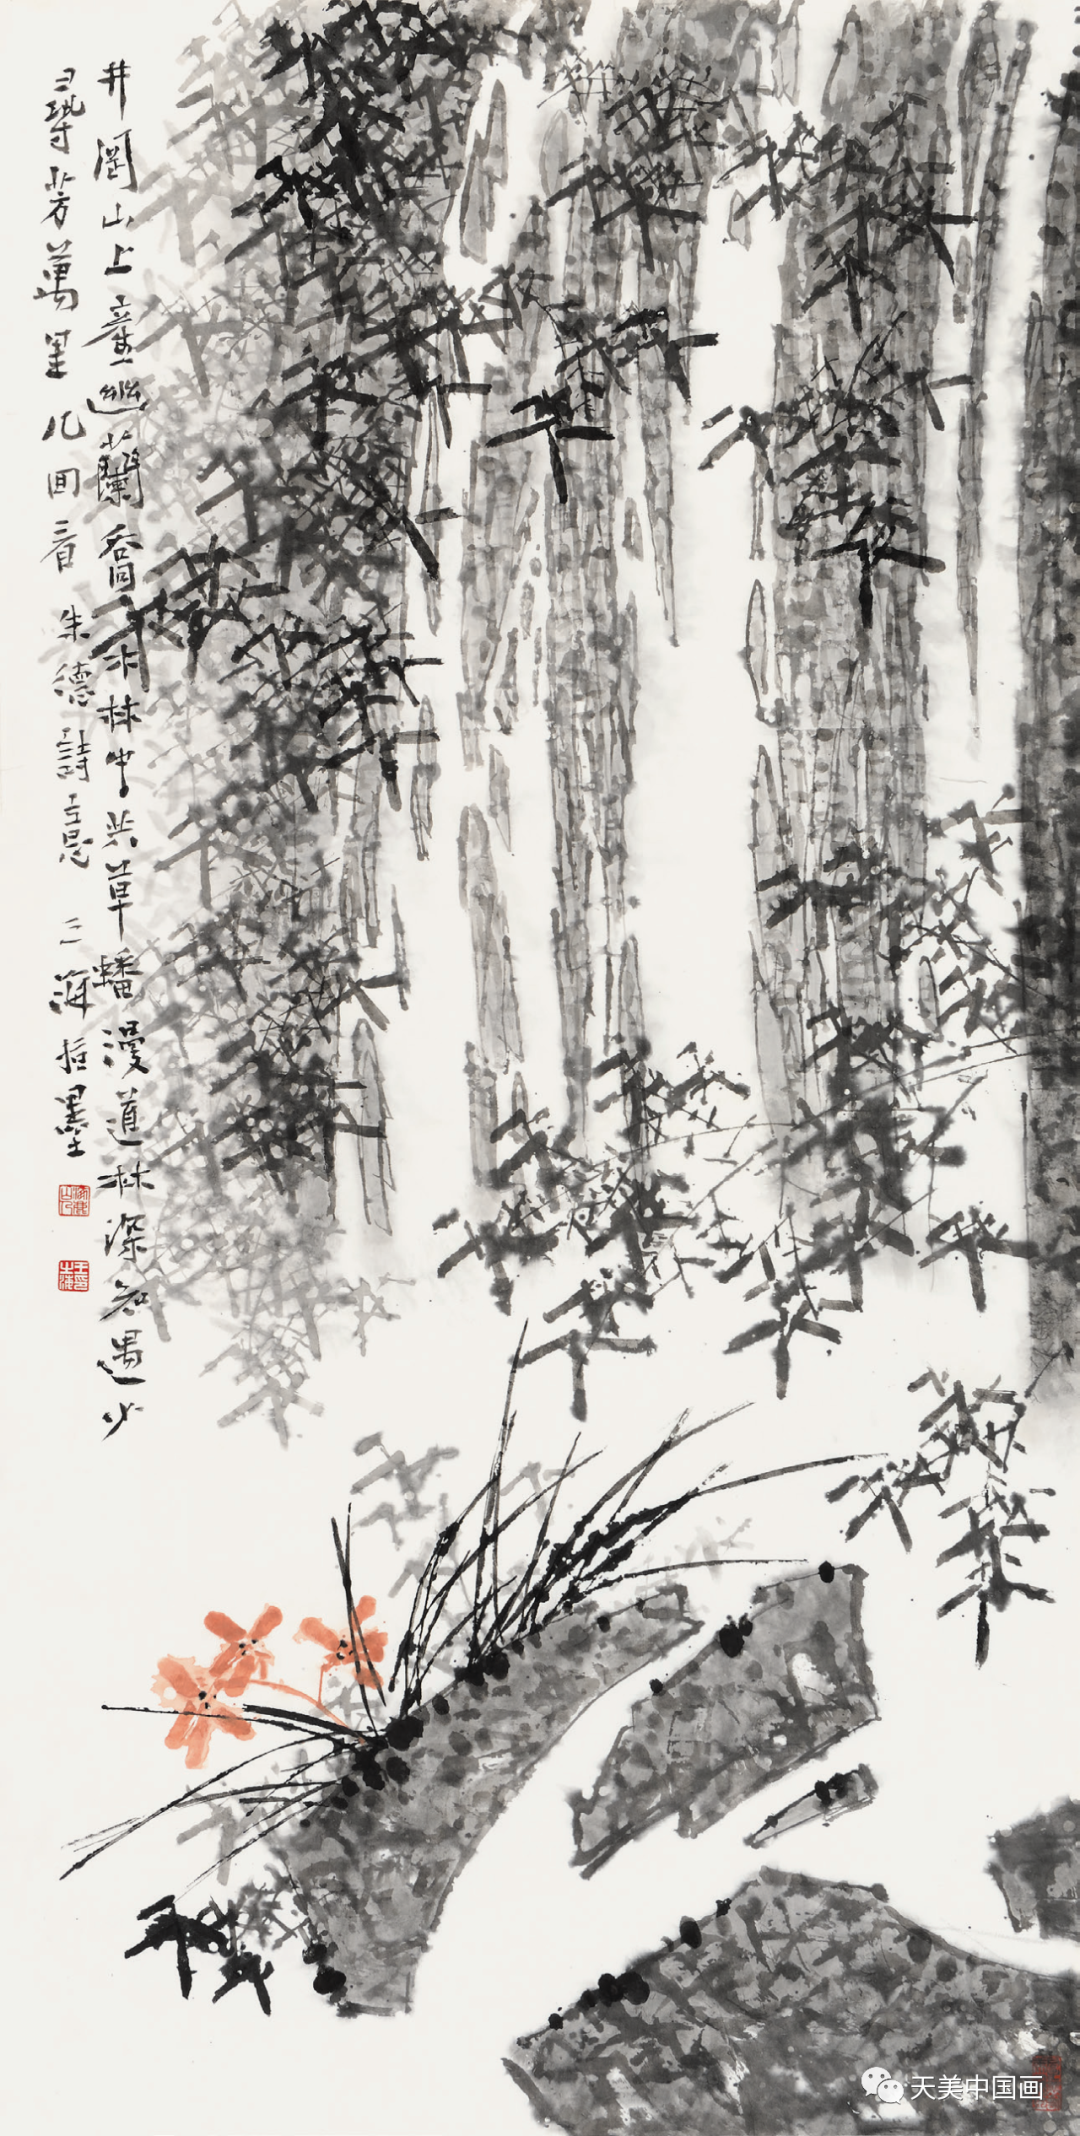 井岡山上產幽蘭喬木林中共草蟠漫道林深知遇少
尋芳萬里几回看 朱德詩意 海 墨
天美中国画